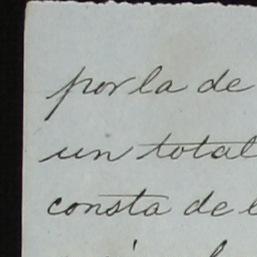 por la de
un total
consta de